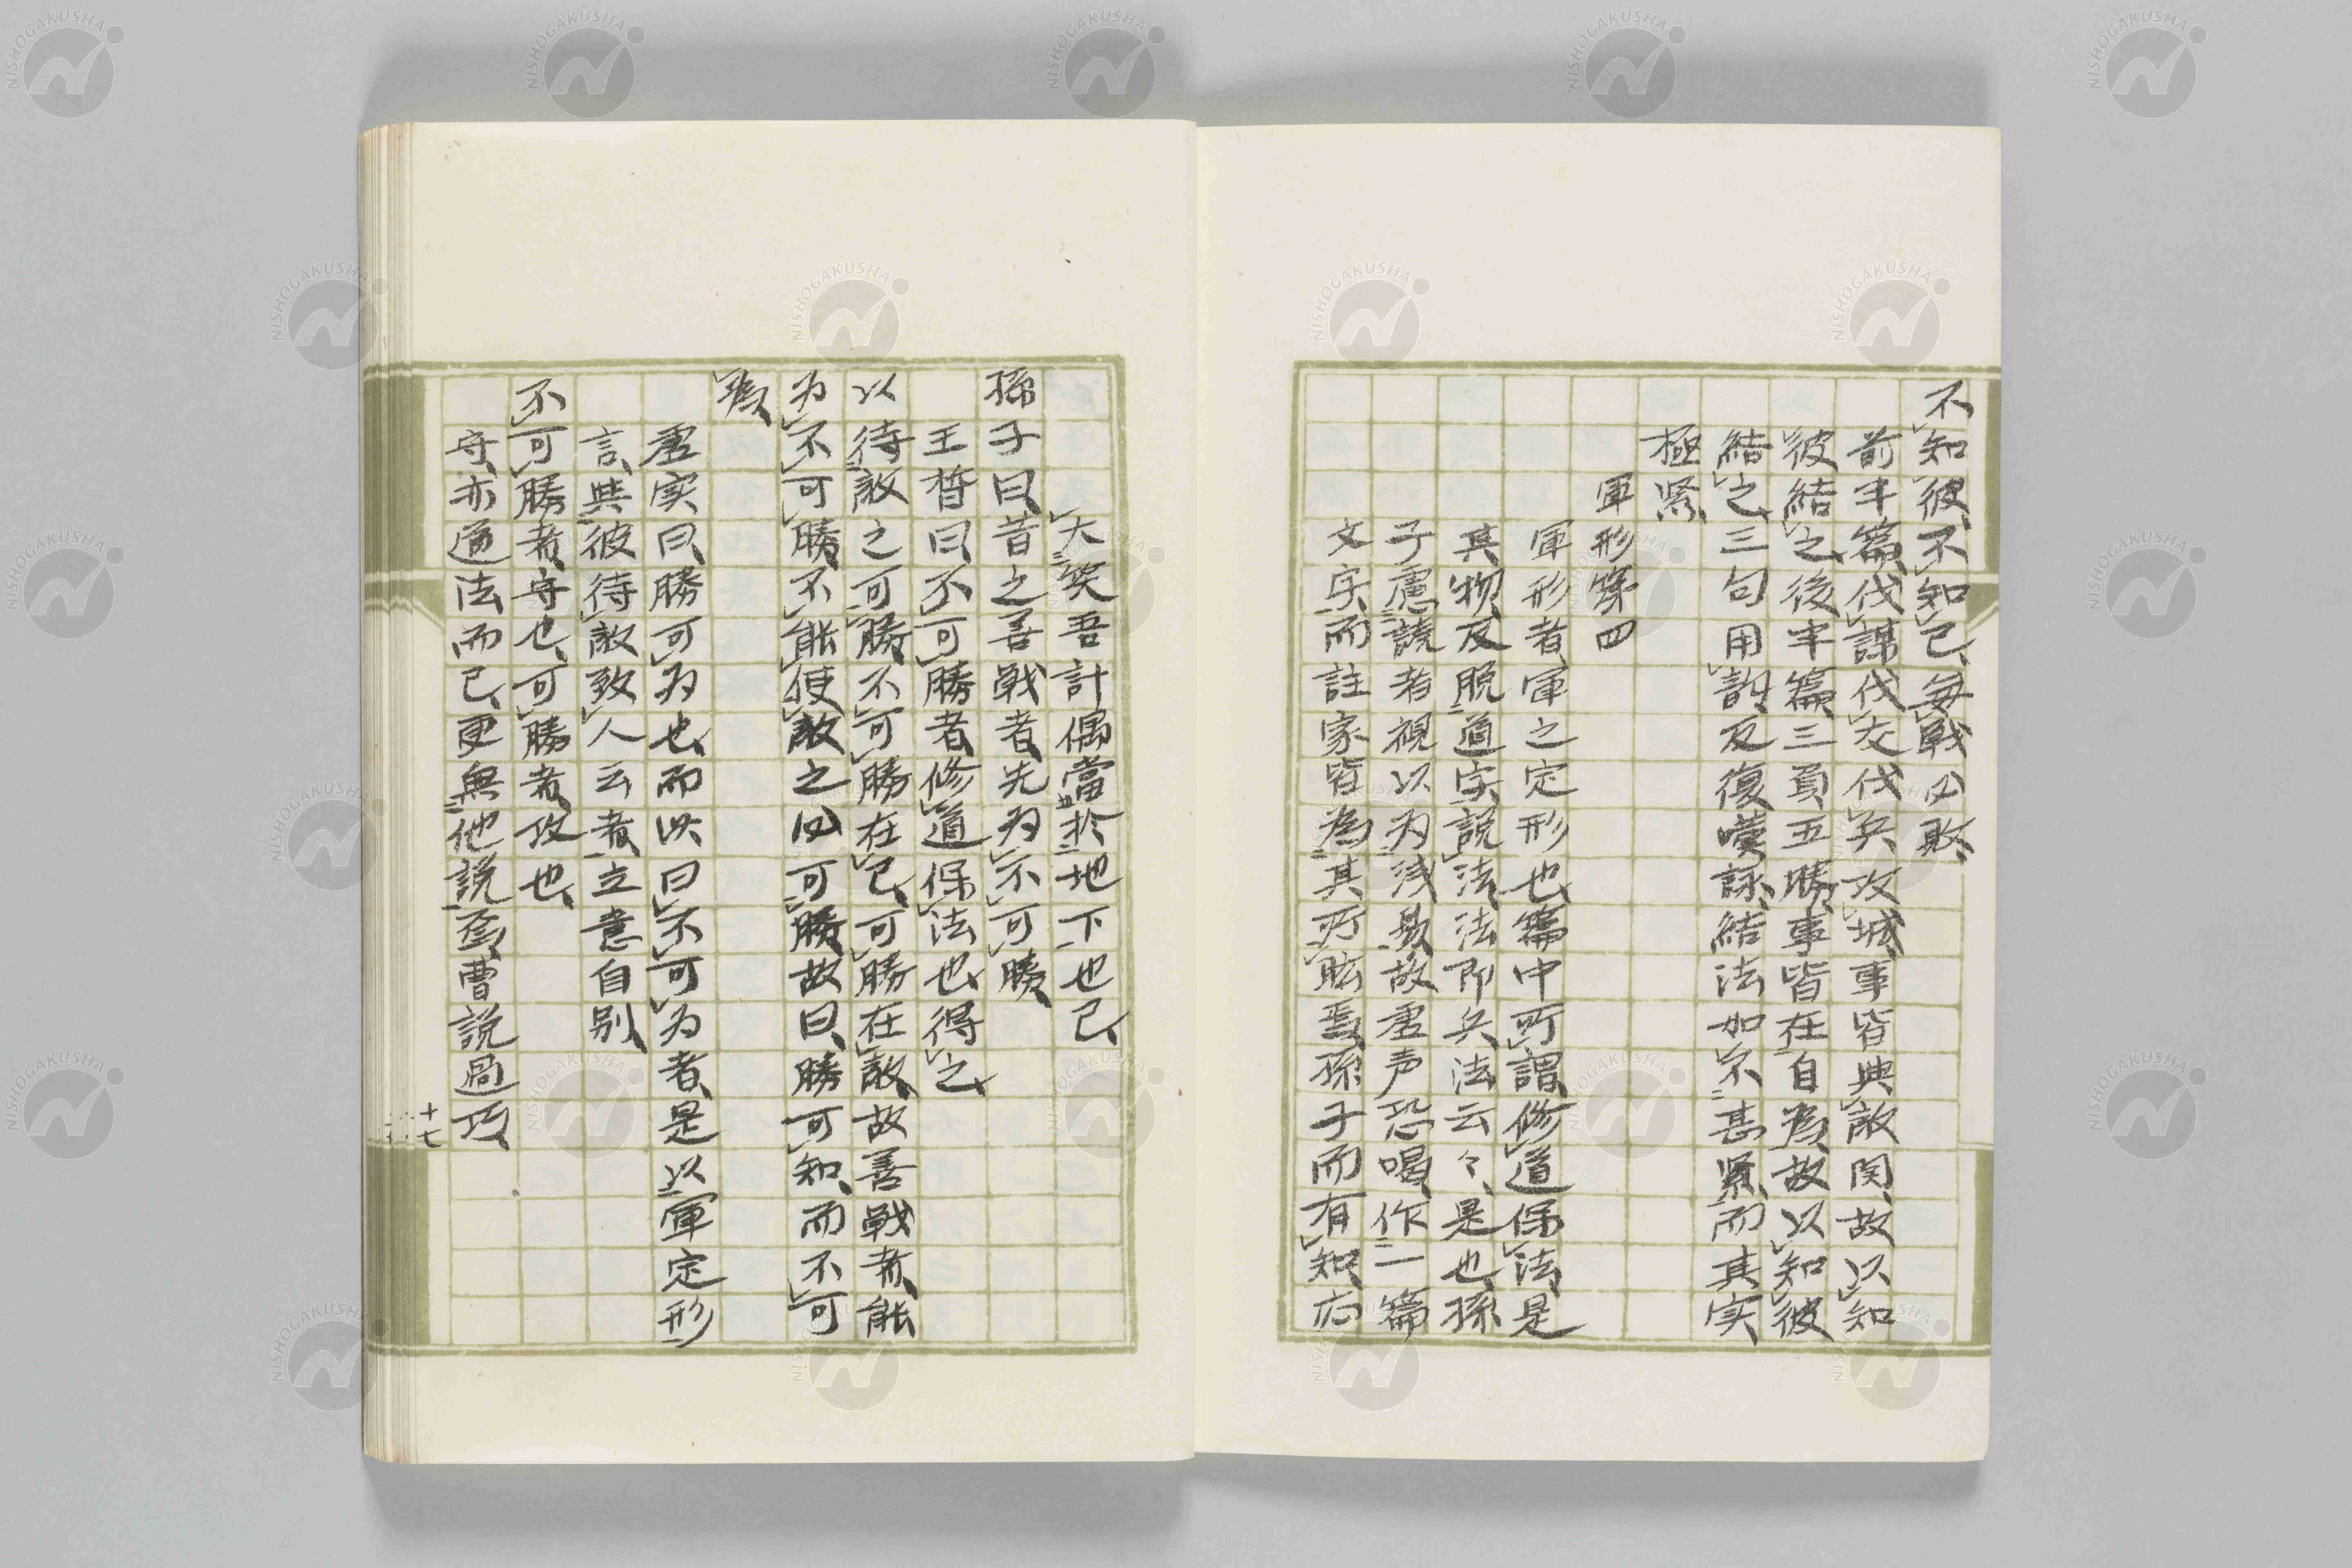 不知彼不知己毎戦必敗
前半篇伐謀伐交伐兵攻城事皆與敵関故以知
彼結之後半篇三負五勝事皆在自為故以知彼
結之三句用韵反復嘆詠結法如不甚緊而其実
極緊
軍形第四
軍形者軍之定形也篇中所謂修道保法是
其物反脱道字説法法即兵法云々是也孫
子慮読者視以为浅易故虚声恐喝作一篇
文字而註家皆為其所眩焉孫子而有知応
大笑吾計偶當於地下也已
孫子曰昔之善戦者先为不可勝
王晳曰不可勝者修道保法也得之
以待敵之可勝不可勝在己可勝在敵故善戦者能
为不可勝不能使敵之必可勝故曰勝可知而不可
為
虚実曰勝可为也而此曰不可为者是以軍定形
言與彼待敵致人云者立意自別
不可勝者守也可勝者攻也
守亦通法而已更無他説杢曹説過巧
十七
NISHOGAKUSHA